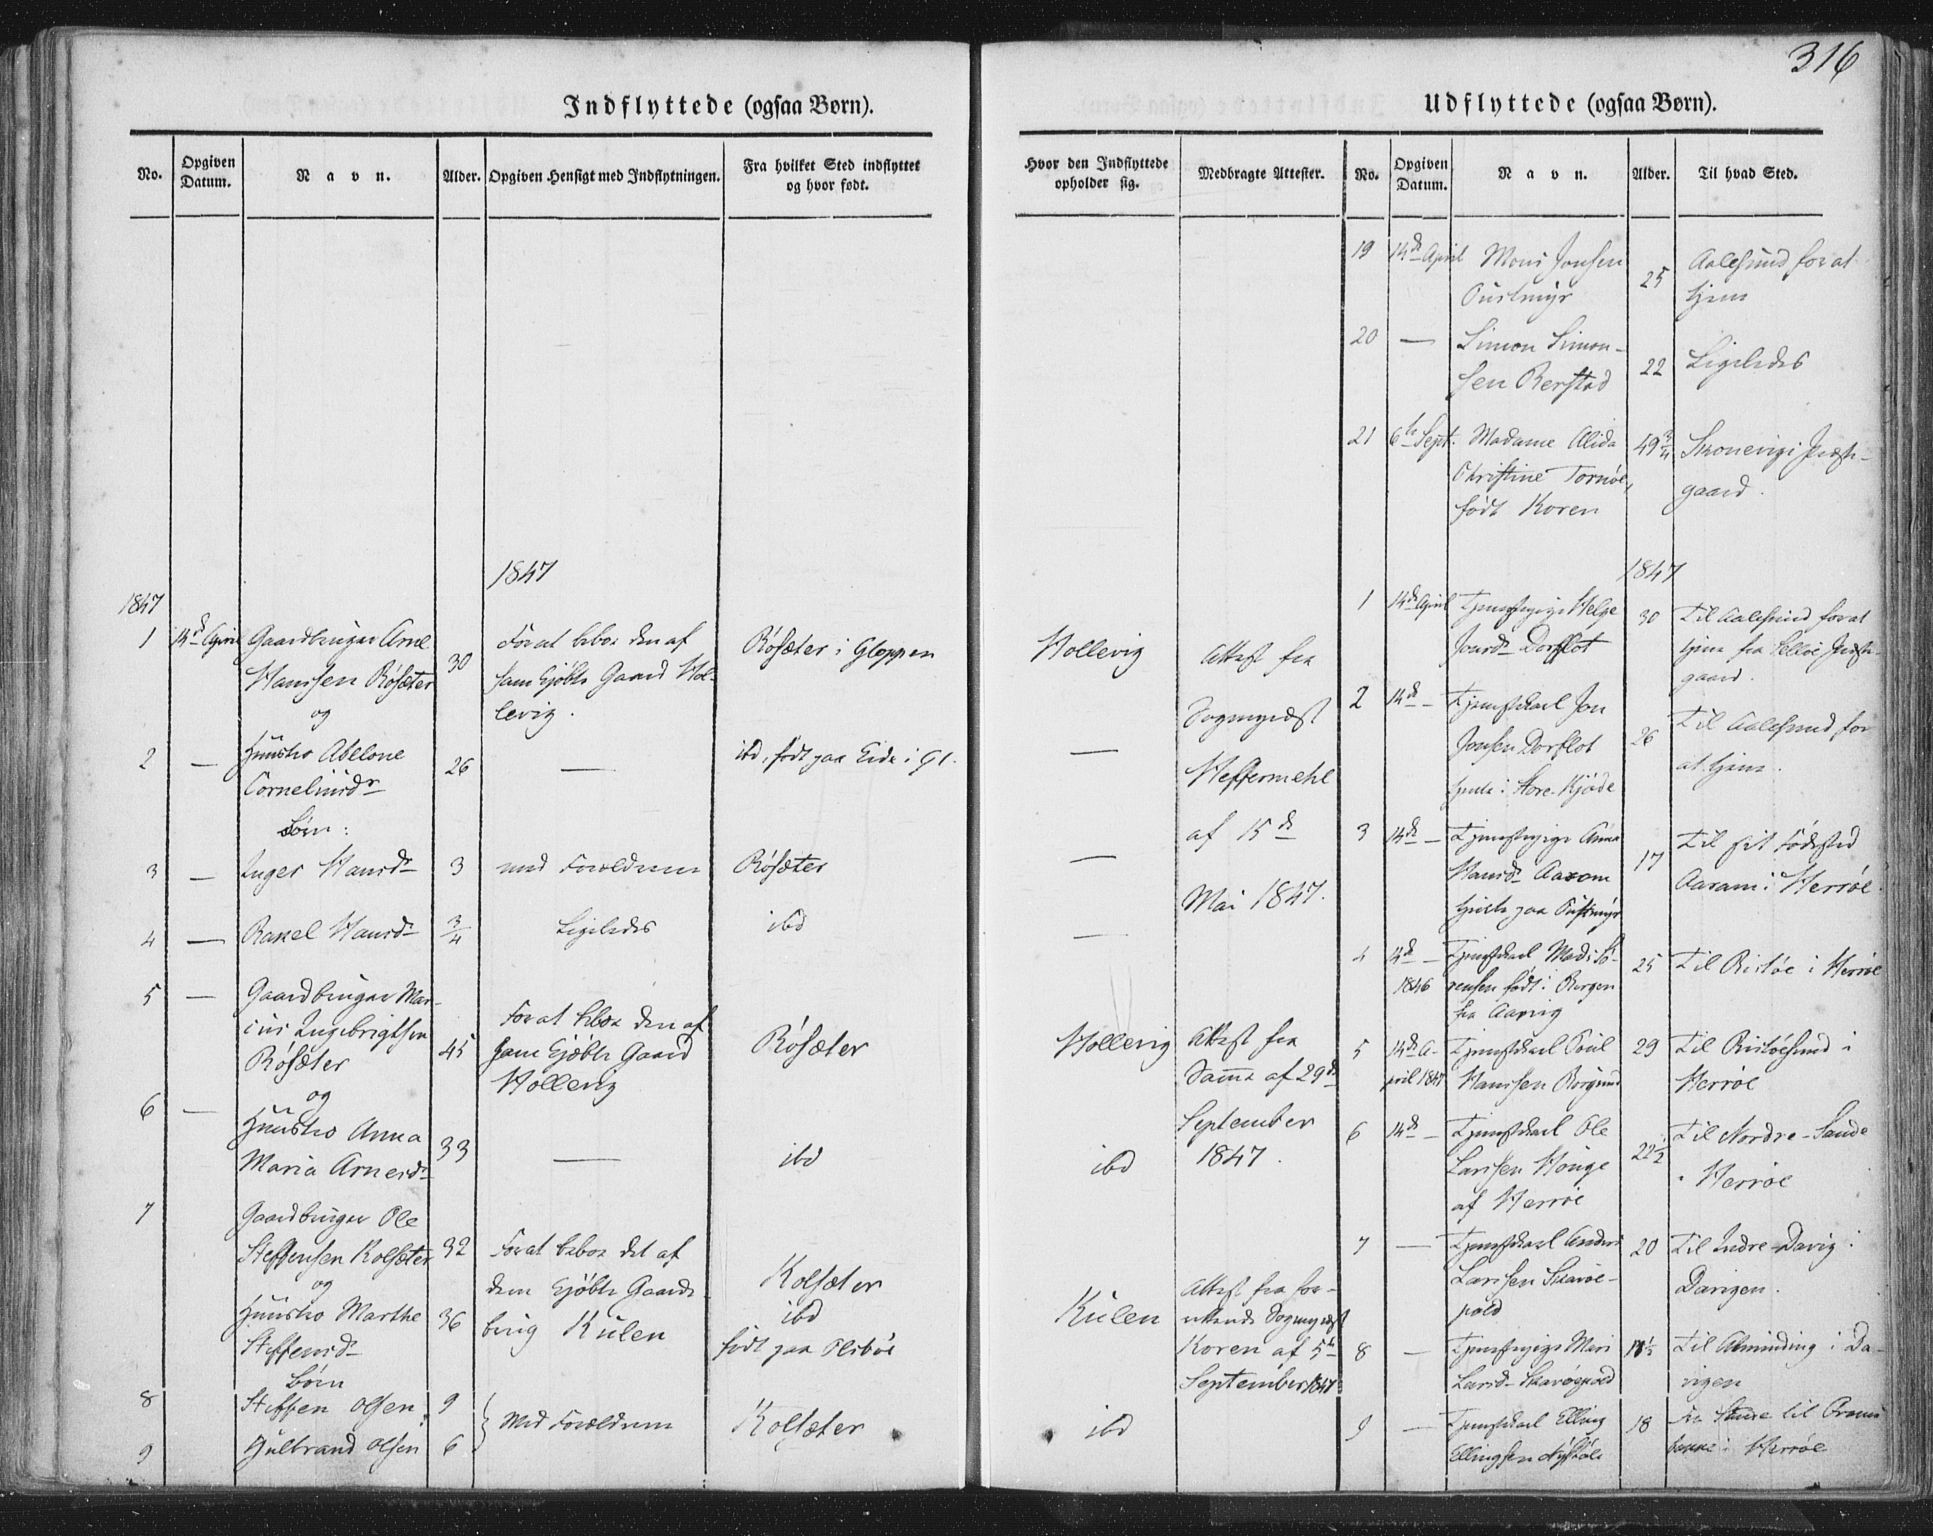 316
Indflyttede (ogsaa Børn).
No.
Opgiven Datum.
Navn.
Alder.
Opgiven Hensigt med Indflytningen.
Fra hvilket Sted indflyttet og hvor født.
1847
1847
1 14d April Gaardbruger Arne 30 For at beboe den af Røsæter i Gloppen
Hanssen Røsæter ham kjøbte Gaard Hol-
og levig.
2 — Huustro Abelone 26 — ibd, født paa Eide i Gl.
Corneliusdr
Børn:
3 — Inger Hansdr 3 med Forældrene Røsæter
4 — Rakel Hansdr 3/4 Ligeledes ibd
5 — Gaardbruger Mar-
Ingebrigtsen 45 For at beboe den af Røsæter
Røsæter ham kjøbte Gaard
og Hollevig
6 — Huustro Anna 33 — ibd
Maria Arnesdr
7 Gaardbruger Ole
Steffensen Kolsæter 32 For at beboe det af Kolsæter
og dem kjøbte Gaards- ibd
Huustro Marthe 36 brug Kulen født paa Olsbøe
Steffensdr
Børn
8 Steffen Olsen 9 Med Forældrene Kolsæter
9 Gulbrand Olsen 6
Udflyttede (ogsaa Børn).
Hvor den Indflyttede opholder sig.
Medbragte Attester.
No.
Opgiven Datum.
Navn.
Alder.
Til hvad Sted.
Hollevig Attest fra
Sogneprest
— Heffermehl
af 15de
—
Mai 1847.
—
Hollevig Attest fra
Samme af 29de
September
ibd 1847.
Kulen Attest fra for-
rettende Sogneprest
Koren af 5te
September 1847
ibd
19 14de April Mons Jonsen 25 Aalesund for at
tjene
20 — Simon Simon- 22 Ligeledes
sen Berstad
21 6te Sept. Madame Alida 49 3/4 Skonevigs Præste-
Christine Tornøe, gaard.
født Koren
1847
1 14de April Tjenestepige Helge 30 Til Aalesund for at
Jonsdr Dorflot tjene fra Selløe Præste-
gaard.
2 14de — Tjenestekarl Jon 26 Til Aalesund for
Jonsen Dorflot at tjene.
3 14de — Tjenestepige Anna 17 Til sit Fødested
Hansdr Aaram Aaram i Herrøe.
4 14de — Tjenestekarl Mads Sø- 25 Til Ristøe i Herrøe
1846 rensen født i Bergen
fra Aarvig
5 14de A- Tjenestekarl Poul 29 Til Ristøesund i
pril 1847 Hanssen Borgund Herrøe
6 14de — Tjenestekarl Ole 22 1/2 Til Nordre-Sande
Larssen Houge i Herrøe
af Herrøe
7 — Tjenestekarl Anders 20 Til Indre-Davig i
Larssen Skavøe- Davigen.
pold
8 — Tjenestepige Mari Til Alminding i Da-
Larsdr Skavøepold vigen
9 — Tjenestekarl Elling 18
Ellingsen i Herrøe